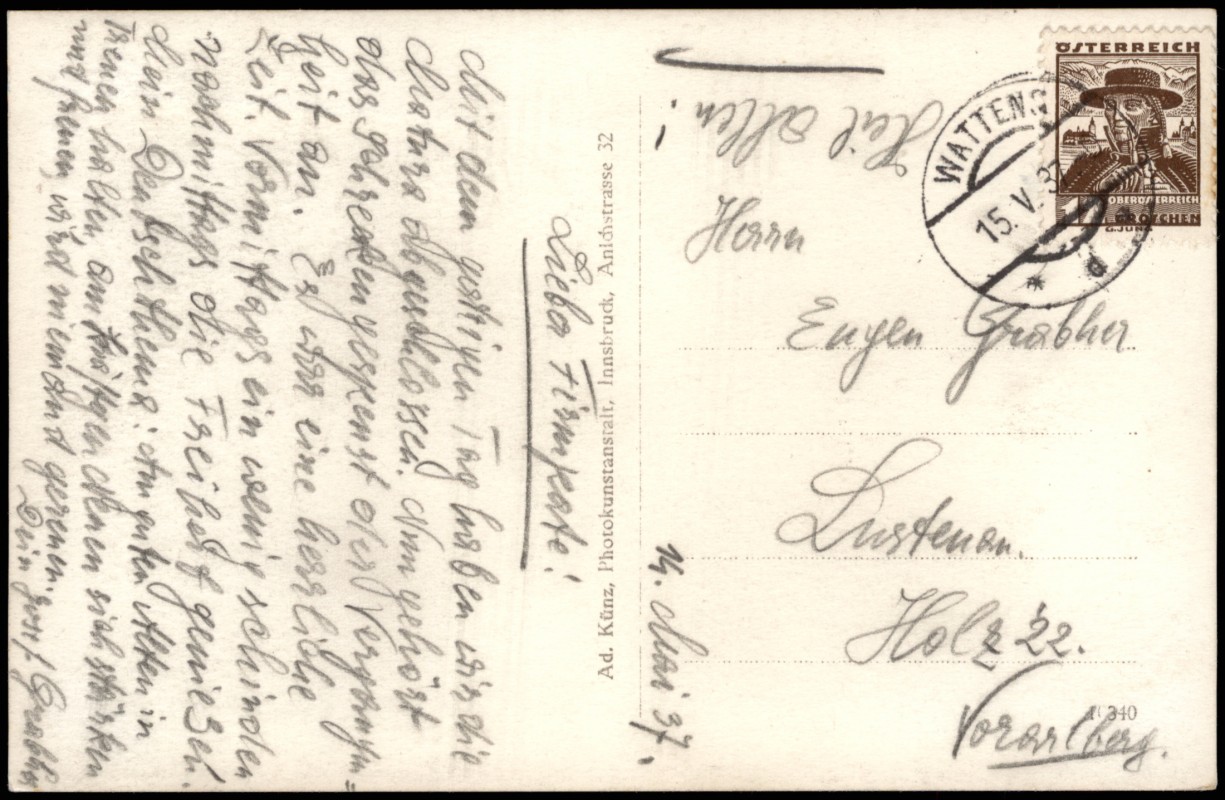 Lieber Firmpate!
Mit dem gestrigen Tag haben wir die
Matura abgeschlossen. Nun gehört
das Schreckengespenst der Vergangen=
heit an. Es war eine herrliche
Zeit. Vormittags ein wenig schinden
nachmittags die Freiheit genießen.
Mein Deutschthema: Am guten Alten in
Treuen halten, am kräftgen Neuen sich stärken
und freuen, wird niemand gereuen.
Dein Josef Grabher
Ad. Künz, Photokunstanstalt, Innsbruck, Anichstrasse 32
14. Mai 37.
Heil Allen!
Herrn
Eugen Grabher
Lustenau.
Holz 22.
Vorarlberg.
340
ÖSTERREICH
OBERÖSTERREICH
GROSCHEN
G.JUNG
WATTENS
15. V. 37
* d